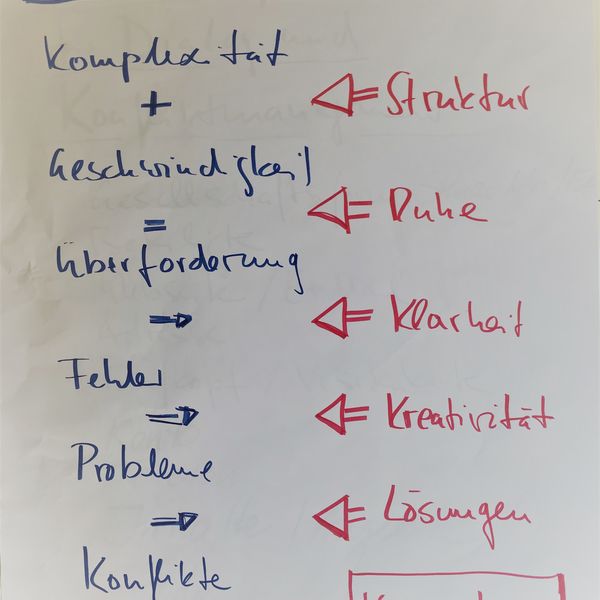 Komplexität
+
⇐ Struktur
Geschwindigkeit
=
⇐ Ruhe
Überforderung
⇒
⇐ Klarheit
Fehler
⇒
⇐ Kreativität
Probleme
⇒
⇐ Lösungen
Konflikte